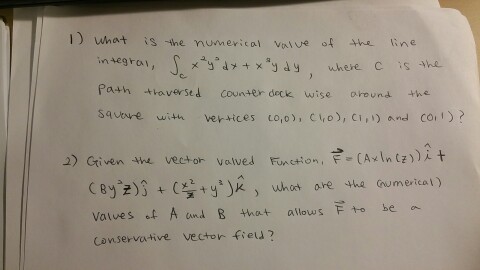 1) What is the numerical value of the line
integral, ∫_C x²y² dx + x³y dy, where C is the
path traversed counter clock wise around the
square with vertices (0,0), (1,0), (1,1) and (0,1)?
2) Given the vector valued function, F⃗ = (Ax ln(z)) î +
(By²z) ĵ + (x²/z + y³) k̂, what are the (numerical)
values of A and B that allows F⃗ to be a
conservative vector field?